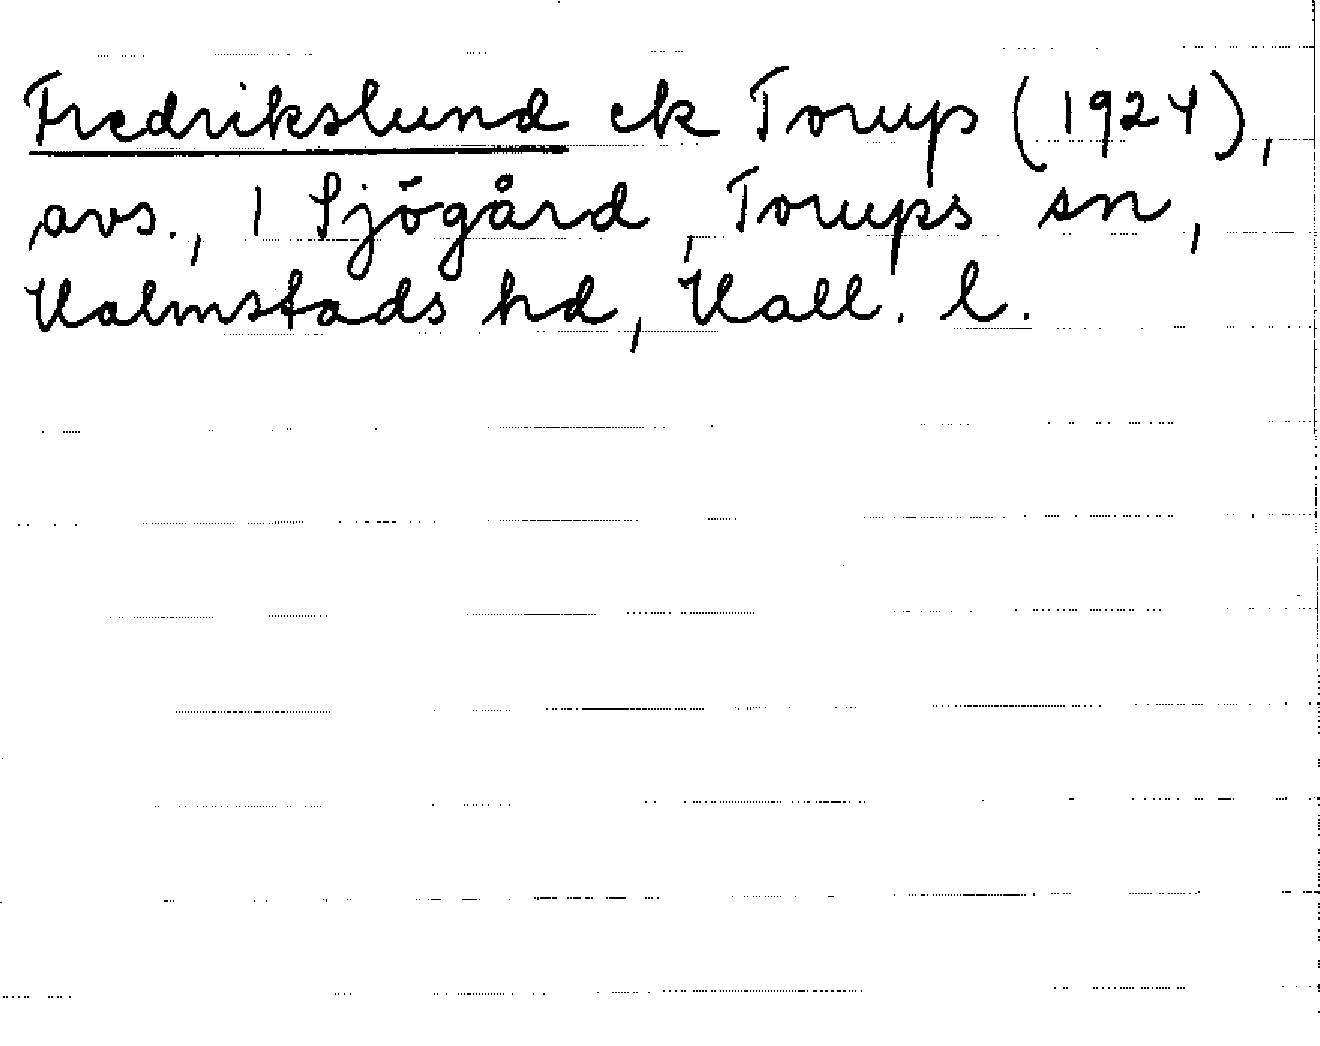 Fredrikslund ek Torup (1924),
avs., 1 Sjögård, Torups sn,
Halmstads hd, Hall. l.